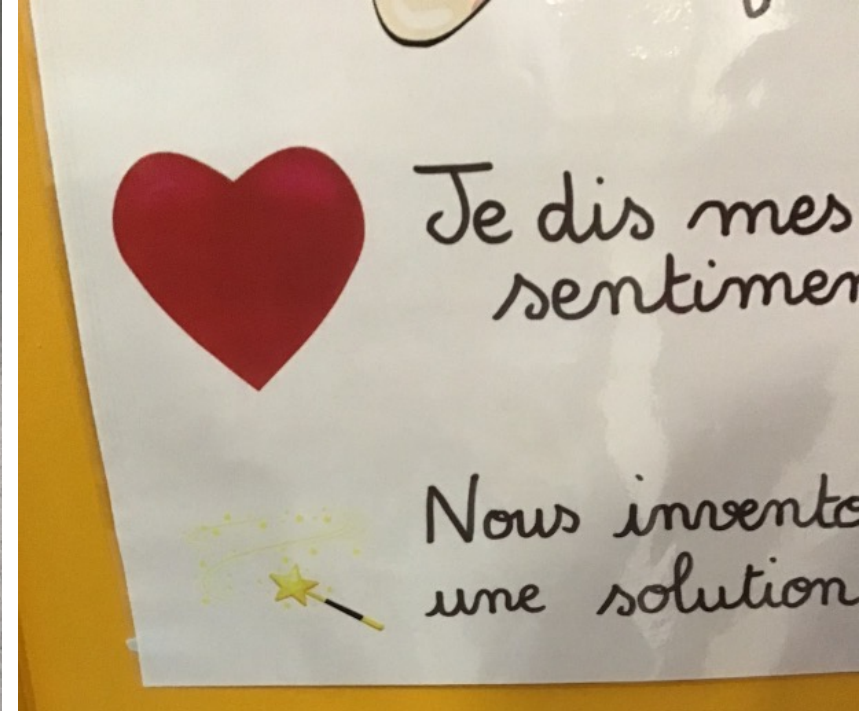 Je dis mes
sentimen
Nous invento
une solution